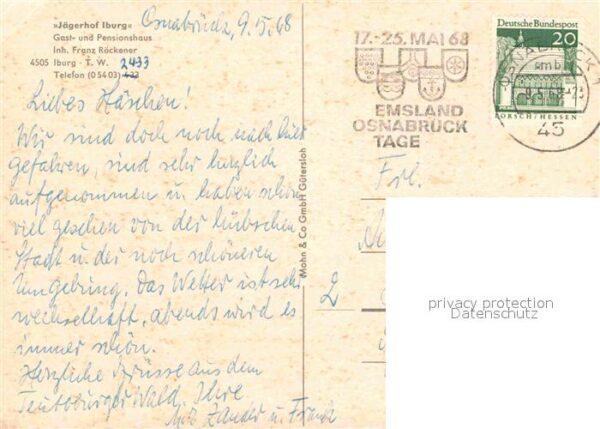 »Jägerhof Iburg«
Gast- und Pensionshaus
Inh. Franz Röckener
4505 Iburg - T. W. 2433
Telefon (0 54 03) 433
Osnabrück, 9.5.68
Liebes Häschen!
Wir sind doch noch nach hier
gefahren, sind sehr herzlich
aufgenommen u. haben schon
viel gesehen von der hübschen
Stadt u. der noch schöneren
Umgebung. Das Wetter ist sehr
wechselhaft, abends wird es
immer schön.
Herzliche Grüsse aus dem
Teutoburger Wald. Ihre
u.
Mohn & Co GmbH Gütersloh
17.-25. MAI 68
EMSLAND
OSNABRÜCK
TAGE
Deutsche Bundespost
20
LORSCH/HESSEN
OSNABRÜCK 1
mb
9.5.68-23
45
Frl.
2
privacy protection
Datenschutz